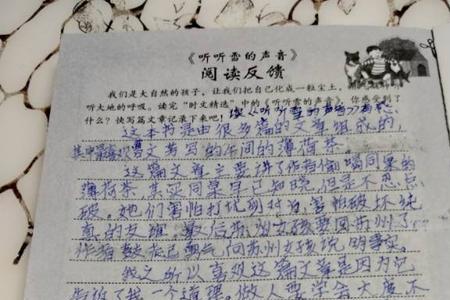 《听听雪的声音》
阅读反馈
我们是大自然的孩子，让我们把自己化成一粒尘土，
听大地的呼吸。读完“时文精选”中的《听听雪的声音》，你感受到了
什么？快写篇文章记录下来吧！
读《听听雪的声音》
这本书是由很多篇的文章组成的，
其中最喜欢 文 写的《午间的薄荷茶
这篇文章主要讲了作者偷喝同桌的
薄荷茶，其实同桌早已知晓，但是不忍点
破。她们害怕打扰到对方，害怕破坏纯
真的友谊，最后苏州女孩要回苏州了，
作者鼓起勇气，向苏州女孩说明事实。
我之所以喜欢这篇文章是因为它
告诉了我一个道理。做人要学会大度，不